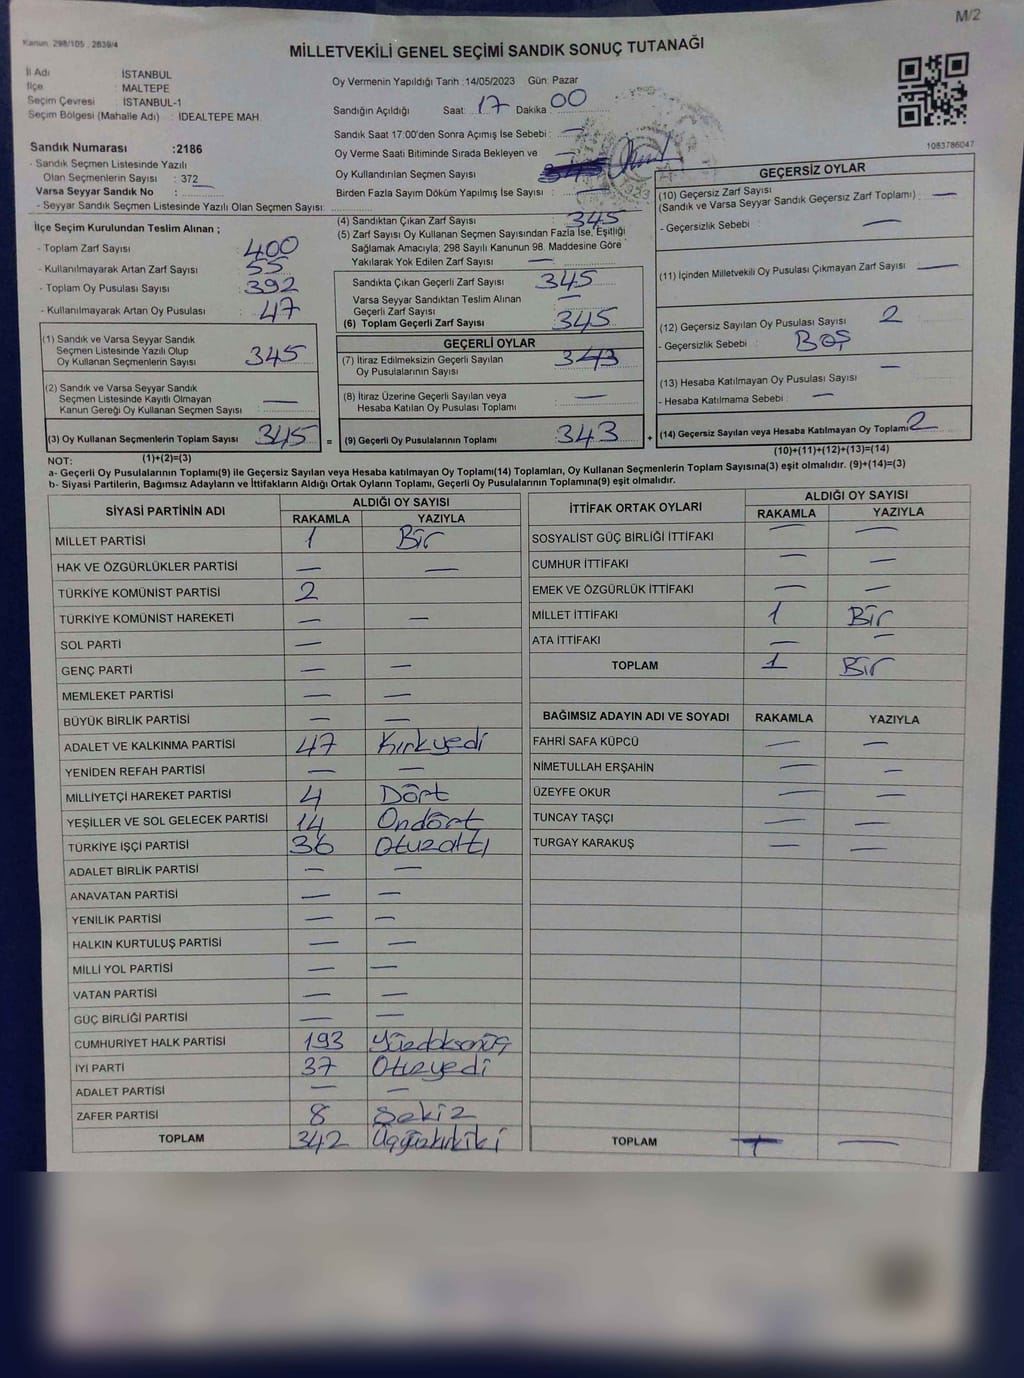 M/2
Kanun: 298/105 : 2839/4
MİLLETVEKİLİ GENEL SEÇİMİ SANDIK SONUÇ TUTANAĞI
İl Adı : İSTANBUL
İlçe : MALTEPE
Seçim Çevresi : İSTANBUL-1
Seçim Bölgesi (Mahalle Adı) : İDEALTEPE MAH.
Sandık Numarası :2186
- Sandık Seçmen Listesinde Yazılı
Olan Seçmenlerin Sayısı : 372
Varsa Seyyar Sandık No :
- Seyyar Sandık Seçmen Listesinde Yazılı Olan Seçmen Sayısı:
Oy Vermenin Yapıldığı Tarih :14/05/2023 Gün: Pazar
Sandığın Açıldığı Saat: 17 Dakika 00
Sandık Saat 17:00'den Sonra Açımış İse Sebebi : —
Oy Verme Saati Bitiminde Sırada Bekleyen ve
Oy Kullandırılan Seçmen Sayısı :
Birden Fazla Sayım Döküm Yapılmış İse Sayısı : —
1083786047
İlçe Seçim Kurulundan Teslim Alınan ;
- Toplam Zarf Sayısı : 400
- Kullanılmayarak Artan Zarf Sayısı : 55
- Toplam Oy Pusulası Sayısı : 392
- Kullanılmayarak Artan Oy Pusulası : 47
(1) Sandık ve Varsa Seyyar Sandık
Seçmen Listesinde Yazılı Olup
Oy Kullanan Seçmenlerin Sayısı : 345
(2) Sandık ve Varsa Seyyar Sandık
Seçmen Listesinde Kayıtlı Olmayan
Kanun Gereği Oy Kullanan Seçmen Sayısı : —
(3) Oy Kullanan Seçmenlerin Toplam Sayısı 345 =
(1)+(2)=(3)
(4) Sandıktan Çıkan Zarf Sayısı : 345
(5) Zarf Sayısı Oy Kullanan Seçmen Sayısından Fazla İse, Eşitliği
Sağlamak Amacıyla; 298 Sayılı Kanunun 98. Maddesine Göre
Yakılarak Yok Edilen Zarf Sayısı : —
Sandıkta Çıkan Geçerli Zarf Sayısı : 345
Varsa Seyyar Sandıktan Teslim Alınan
Geçerli Zarf Sayısı : —
(6) Toplam Geçerli Zarf Sayısı : 345
GEÇERLİ OYLAR
(7) İtiraz Edilmeksizin Geçerli Sayılan
Oy Pusulalarının Sayısı : 343
(8) İtiraz Üzerine Geçerli Sayılan veya
Hesaba Katılan Oy Pusulası Toplamı : —
(9) Geçerli Oy Pusulalarının Toplamı : 343 +
GEÇERSİZ OYLAR
(10) Geçersiz Zarf Sayısı
(Sandık ve Varsa Seyyar Sandık Geçersiz Zarf Toplamı) : —
- Geçersizlik Sebebi : —
(11) İçinden Milletvekili Oy Pusulası Çıkmayan Zarf Sayısı : —
(12) Geçersiz Sayılan Oy Pusulası Sayısı : 2
- Geçersizlik Sebebi : BOŞ
(13) Hesaba Katılmayan Oy Pusulası Sayısı : —
- Hesaba Katılmama Sebebi : —
(14) Geçersiz Sayılan veya Hesaba Katılmayan Oy Toplamı: 2
(10)+(11)+(12)+(13)=(14)
NOT:
a- Geçerli Oy Pusulalarının Toplamı(9) ile Geçersiz Sayılan veya Hesaba katılmayan Oy Toplamı(14) Toplamları, Oy Kullanan Seçmenlerin Toplam Sayısına(3) eşit olmalıdır. (9)+(14)=(3)
b- Siyasi Partilerin, Bağımsız Adayların ve İttifakların Aldığı Ortak Oyların Toplamı, Geçerli Oy Pusulalarının Toplamına(9) eşit olmalıdır.
SİYASİ PARTİNİN ADI ALDIĞI OY SAYISI
RAKAMLA YAZIYLA
MİLLET PARTİSİ 1 Bir
HAK VE ÖZGÜRLÜKLER PARTİSİ — —
TÜRKİYE KOMÜNİST PARTİSİ 2
TÜRKİYE KOMÜNİST HAREKETİ — —
SOL PARTİ —
GENÇ PARTİ — —
MEMLEKET PARTİSİ — —
BÜYÜK BİRLİK PARTİSİ — —
ADALET VE KALKINMA PARTİSİ 47 Kırkyedi
YENİDEN REFAH PARTİSİ — —
MİLLİYETÇİ HAREKET PARTİSİ 4 Dört
YEŞİLLER VE SOL GELECEK PARTİSİ 14 Ondört
TÜRKİYE İŞÇİ PARTİSİ 36 Otuzaltı
ADALET BİRLİK PARTİSİ — —
ANAVATAN PARTİSİ — —
YENİLİK PARTİSİ — —
HALKIN KURTULUŞ PARTİSİ — —
MİLLİ YOL PARTİSİ — —
VATAN PARTİSİ — —
GÜÇ BİRLİĞİ PARTİSİ — —
CUMHURİYET HALK PARTİSİ 193 Yüzdoksanüç
İYİ PARTİ 37 Otuzyedi
ADALET PARTİSİ — —
ZAFER PARTİSİ 8 Sekiz
TOPLAM 342 Üçyüzkırkiki
İTTİFAK ORTAK OYLARI ALDIĞI OY SAYISI
RAKAMLA YAZIYLA
SOSYALİST GÜÇ BİRLİĞİ İTTİFAKI — —
CUMHUR İTTİFAKI — —
EMEK VE ÖZGÜRLÜK İTTİFAKI — —
MİLLET İTTİFAKI 1 Bir
ATA İTTİFAKI — —
TOPLAM 1 Bir
BAĞIMSIZ ADAYIN ADI VE SOYADI RAKAMLA YAZIYLA
FAHRİ SAFA KÜPCÜ — —
NİMETULLAH ERŞAHİN — —
ÜZEYFE OKUR — —
TUNCAY TAŞÇI — —
TURGAY KARAKUŞ — —
TOPLAM —